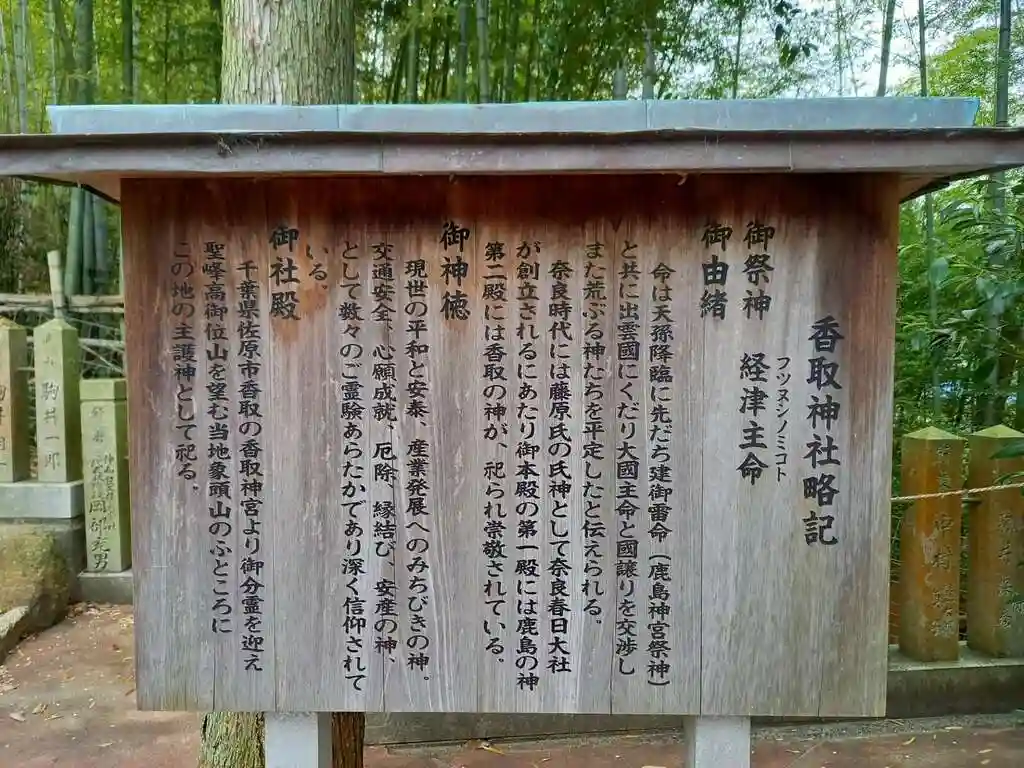 香取神社略記
御祭神　経津主命
フツヌシノミコト
御由緒
命は天孫降臨に先だち建御雷命（鹿島神宮祭神）
と共に出雲國にくだり大國主命と國譲りを交渉し
また荒ぶる神たちを平定したと伝えられる。
奈良時代には藤原氏の氏神として奈良春日大社
が創立されるにあたり御本殿の第一殿には鹿島の神
第二殿には香取の神が、祀られ崇敬されている。
御神徳
現世の平和と安泰、産業発展へのみちびきの神。
交通安全、心願成就、厄除、縁結び、安産の神、
として数々のご霊験あらたかであり深く信仰されて
いる、
御社殿
千葉県佐原市香取の香取神宮より御分霊を迎え
聖峰高御位山を望む当地象頭山のふところに
この地の主護神として祀る.
駒井一郎
岡部克男